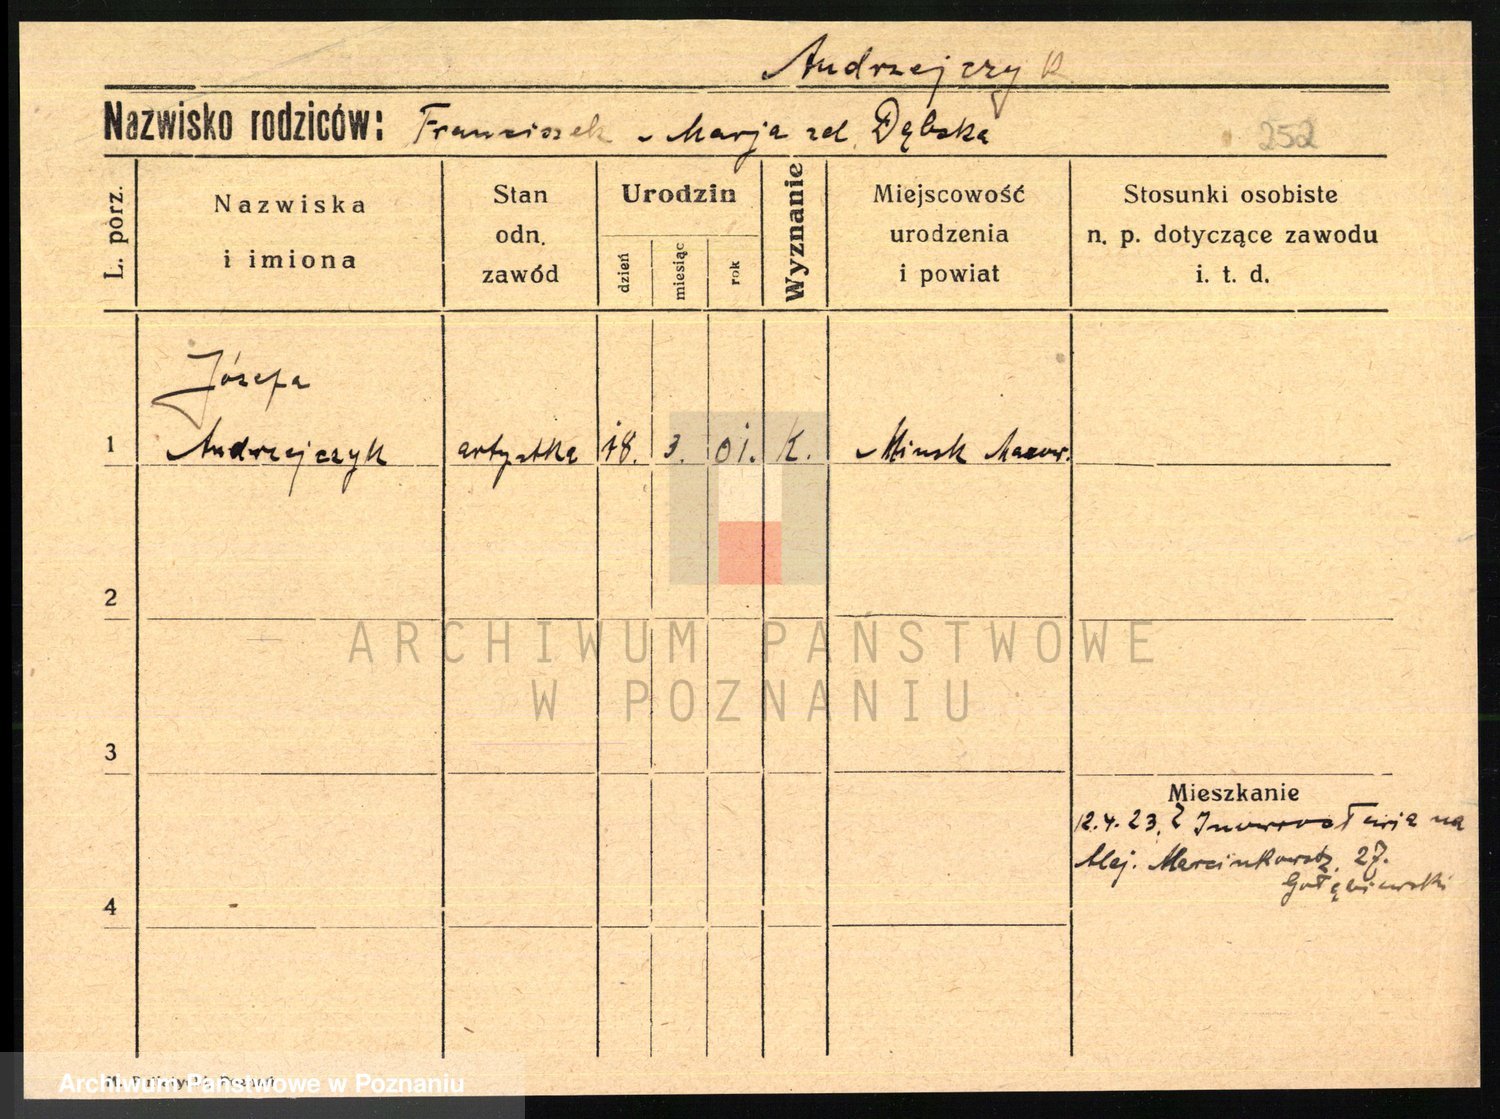 Andrzejczyk
Nazwisko rodziców: Franciszek Marja zd. Dąbska
252
L. porz.
Nazwiska
i imiona
Stan
odn.
zawód
Urodzin
dzień
miesiąc
rok
Wyznanie
Miejscowość
urodzenia
i powiat
Stosunki osobiste
n. p. dotyczące zawodu
i. t. d.
Józefa
1 Andrzejczyk artystka 18. 3. 01. K. Minsk Mazow.
2
ARCHIWUM PAŃSTWOWE
W POZNANIU
3
Mieszkanie
12.4.23. Z Inowrocławia na
Alej. Marcinkowsk. 27.
Gołębiewski
4
Archiwum Państwowe w Poznaniu